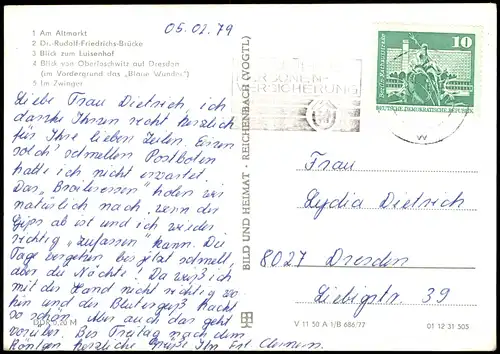 05.02.79
1 Am Altmarkt
2 Dr.-Rudolf-Friedrichs-Brücke
3 Blick zum Luisenhof
4 Blick von Oberloschwitz auf Dresden
(im Vordergrund das „Blaue Wunder")
5 Im Zwinger
Liebe Frau Dietrich, ich
danke Ihnen recht herzlich
für Ihre lieben Zeilen. Einen
solch' schnellen Postboten
hatte ich nicht erwartet.
Das „Broileressen" holen wir
natürlich nach, wenn der
Gips ab ist und ich wieder
richtig „zufassen" kann. Die
Tage vergehen bis jetzt schnell,
aber die Nächte! Da weiß ich
mit der Hand nicht richtig wo
hin und der Bluterguß
so schön. Aber auch das geht
vorüber. Bis Freitag nach dem
Röntgen herzliche Grüße Ihr Frl.
M
BILD UND HEIMAT · REICHENBACH (VOGTL)
PERSONEN-
VERSICHERUNG
10
DEUTSCHE DEMOKRATISCHE REPUBLIK
w
Frau
Lydia Dietrich
8027 Dresden
Liebigstr. 39
V 11 50 A 1/B 686/77
01 12 31 505